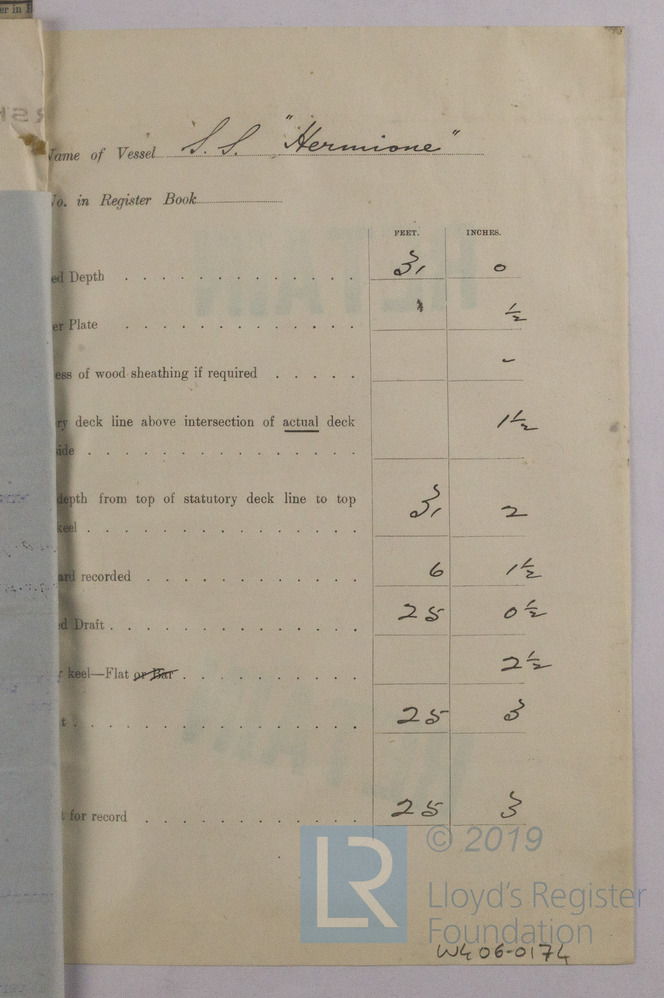 er in
Name of Vessel S.S. "Hermione"
No. in Register Book
FEET. INCHES.
ed Depth 31 0
er Plate ½
ess of wood sheathing if required -
ry deck line above intersection of actual deck 1½
side
depth from top of statutory deck line to top 31 2
keel
ard recorded 6 1½
ed Draft 25 0½
keel—Flat or Bar 2½
t 25 3
t for record 25 3
RETAIN
RETAIN
LR
© 2019
Lloyd's Register
Foundation
W406-0174